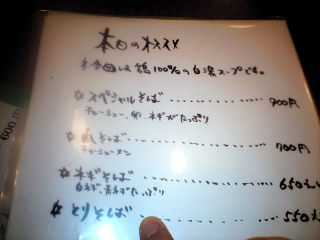 本日のオススメ
今回は鶏100%の白湯スープです。
☆スペシャルそば………… 900円
チャーシュー、卵、ネギがたっぷり
そば………… 700円
チャーシューメン
☆ネギそば………… 650円
白ネギ、青ネギたっぷり
☆とりそば………… 550
600円